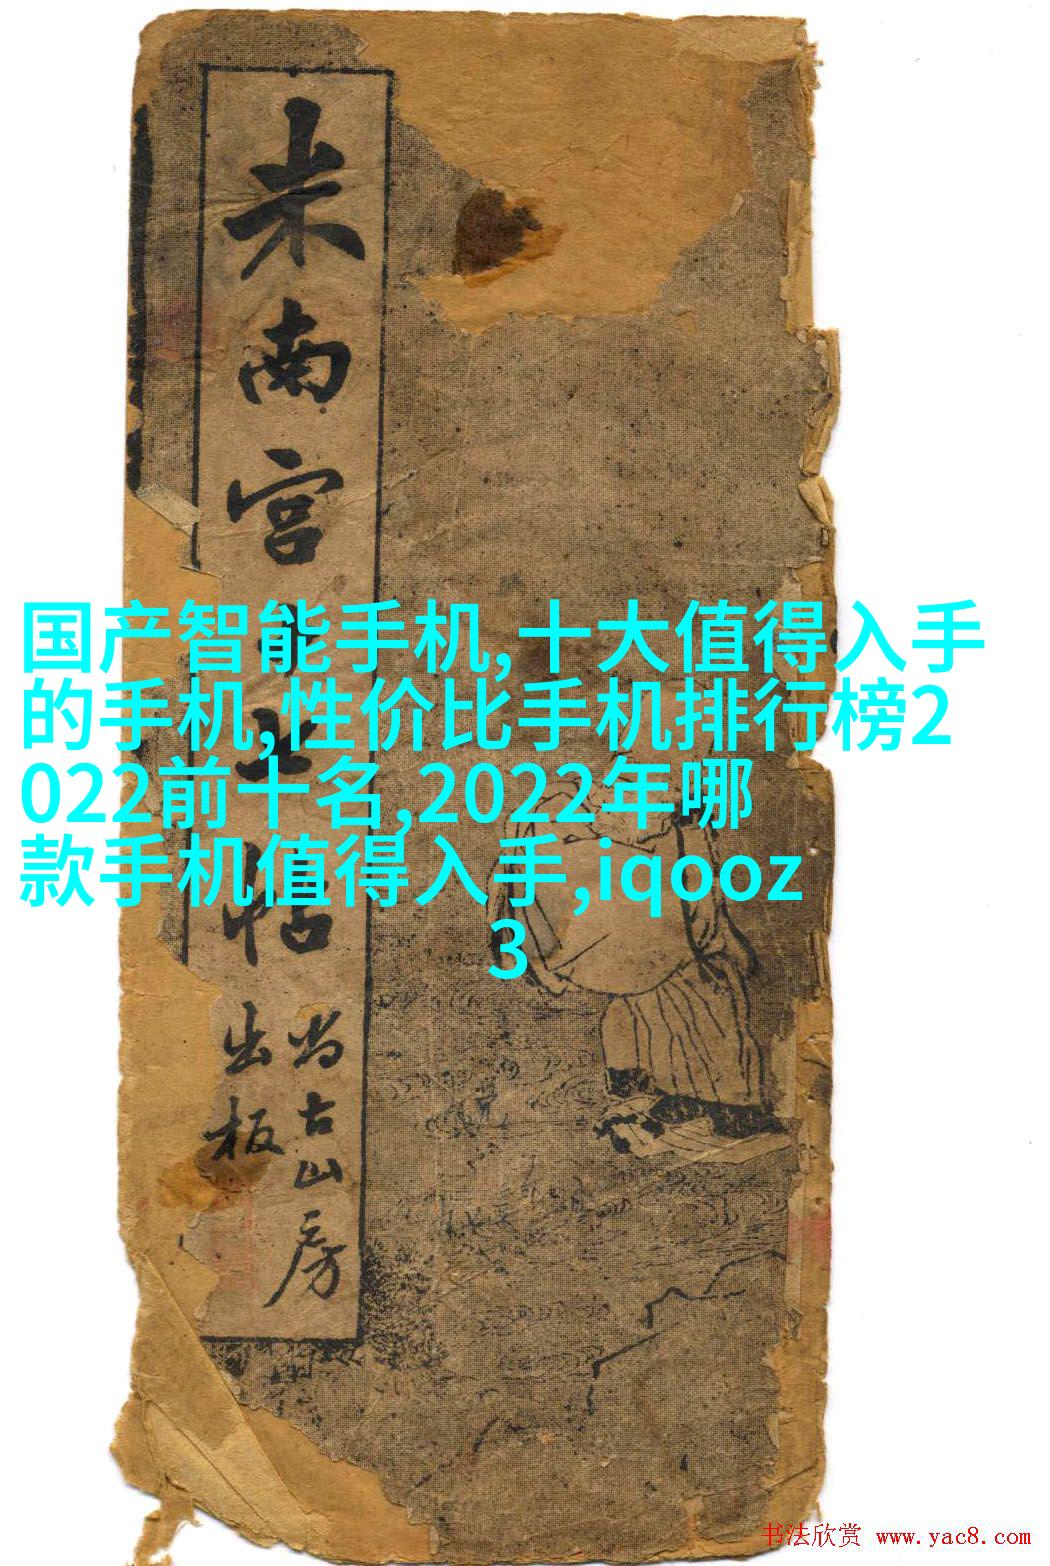 国产智能手机,十大值得入手
的手机,性价比手机排行榜2
022前十名,2022年哪
款手机值得入手,iqooz
3
米南宫
帖
尚古山房
出板
书法欣赏 www.yac8.com